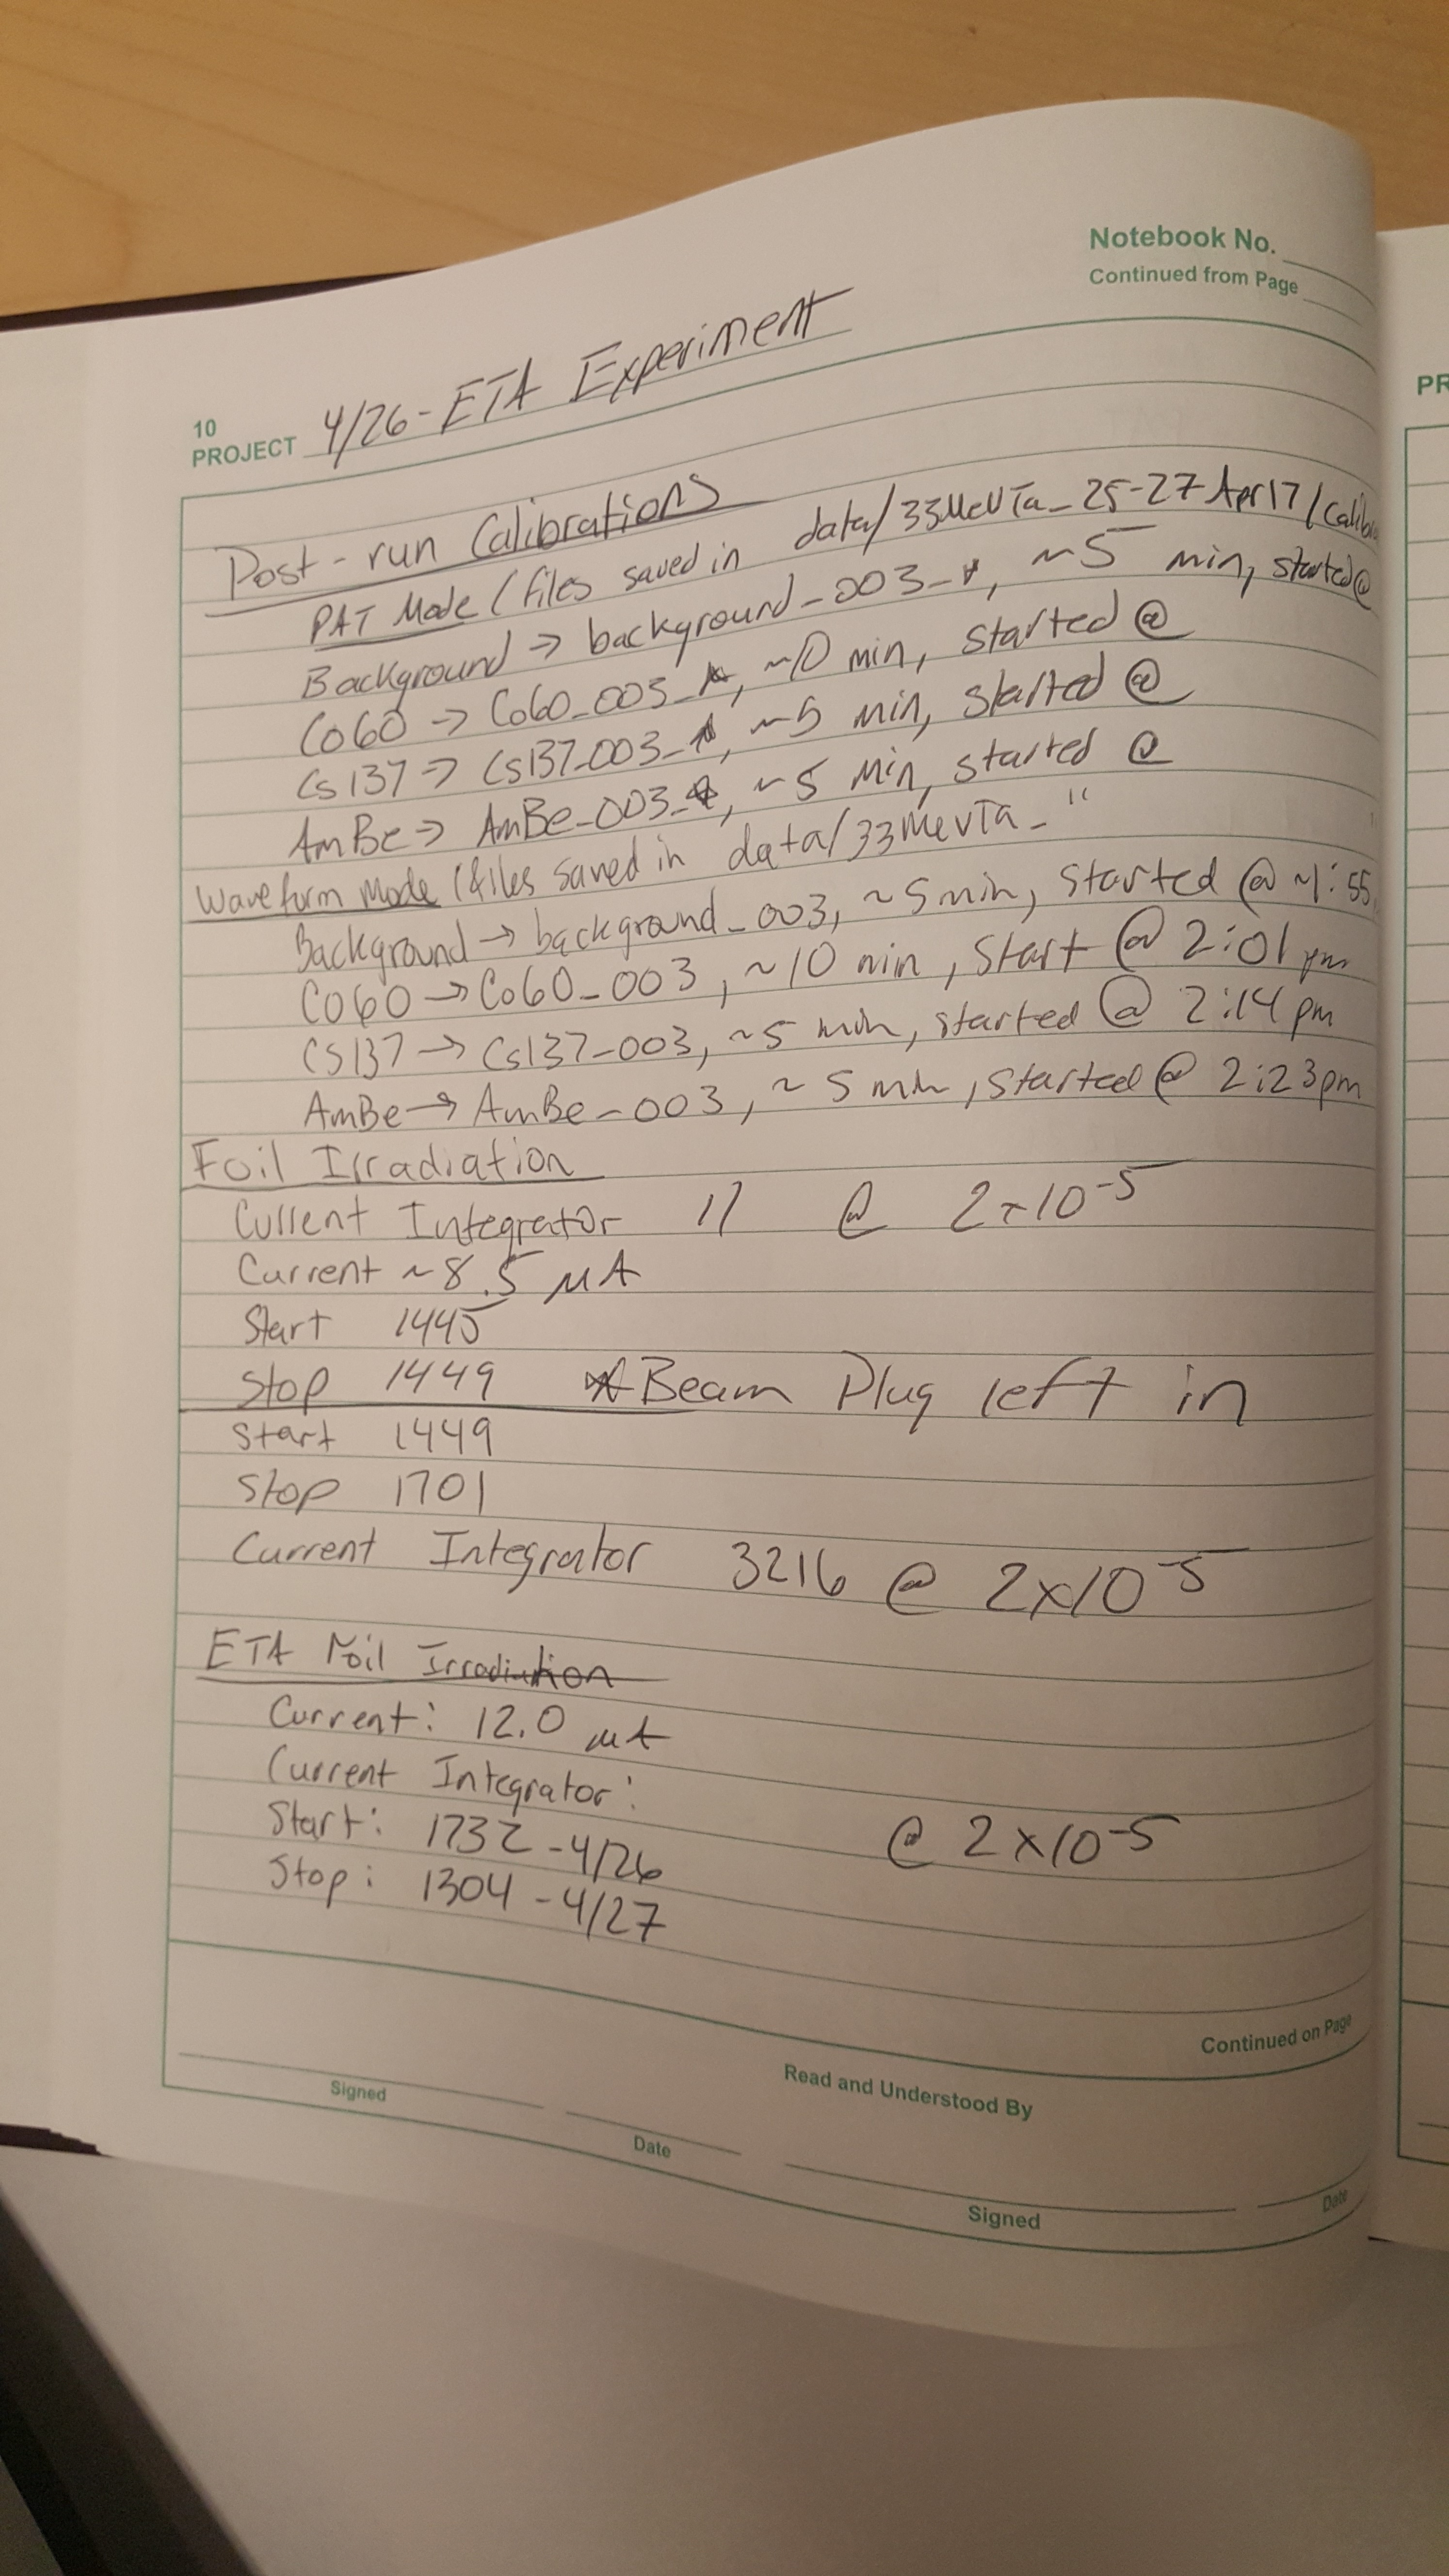 Notebook No.
Continued from Page
10
PROJECT 4/26 - ETA Experiment
PR
Post-run Calibrations
PAT Mode (files saved in data/33MeVTa_25-27Apr17/Calib
Background → background_003_*, ~5 min, started @
Co60 → Co60_003_*, ~10 min, started @
Cs137 → Cs137_003_*, ~5 min, started @
AmBe → AmBe_003_*, ~5 min, started @
Waveform Mode (files saved in data/33MevTa_ "
Background → background_003, ~5min, started @ ~1:55
Co60 → Co60_003, ~10 min, Start @ 2:01 pm
CS137 → Cs137_003, ~5 min, started @ 2:14 pm
AmBe → AmBe_003, ~5 min, started @ 2:23pm
Foil Irradiation
Current Integrator 11 @ 2×10^-5
Current ~8.5 μA
Start 1445
Stop 1449 *Beam Plug left in
Start 1449
Stop 1701
Current Integrator 3216 @ 2×10^-5
ETA Foil Irradiation
Current: 12.0 μA
Current Integrator: @ 2×10^-5
Start: 1732 - 4/26
Stop: 1304 - 4/27
Continued on Page
Read and Understood By
Signed
Date
Signed
Date